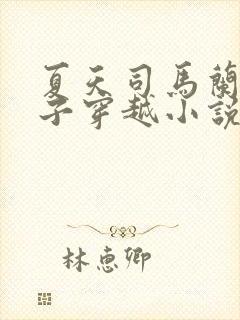 夏天司馬蘭
子穿越小說
林惠卿